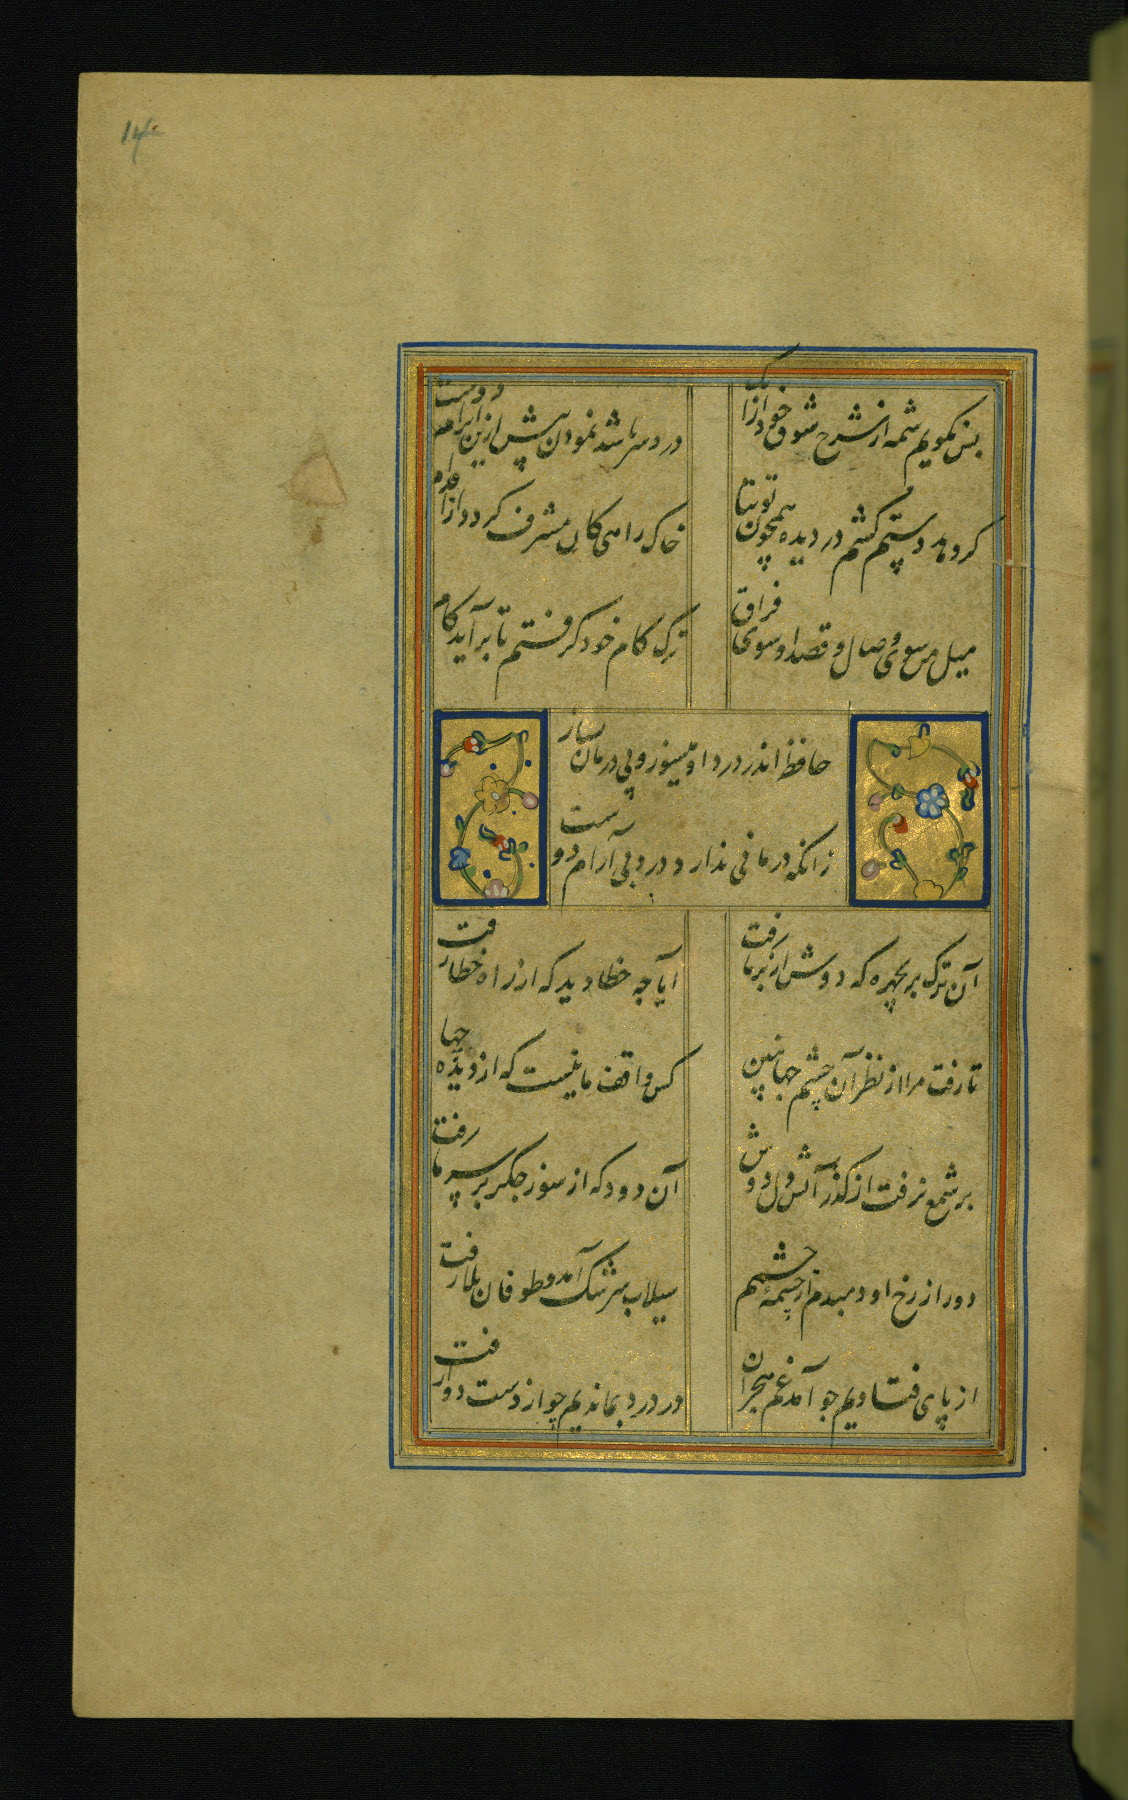 14
بس نگویم شمه از شرح شوق خود از آنک
دردسر باشد نمودن بیش ازین ابرام دوست
گر دهد دستم کشم در دیده همچون توتیا
خاک راهی کان مشرف گردد از اقدام
میل من سوی وصال و قصد او سوی فراق
ترک کام خود گرفتم تا برآید کام
حافظ اندر درد او میسوز و بی درمان بساز
زانکه درمانی ندارد درد بی آرام دوست
آن ترک پریچهره که دوش از بر ما رفت
آیا چه خطا دید که از راه خطا رفت
تا رفت مرا از نظر آن چشم جهانبین
کس واقف ما نیست که از دیده چها
بر شمع نرفت از گذر آتش دل دوش
آن دود که از سوز جگر بر سر ما رفت
دور از رخ او دمبدم از چشمهٔ چشمم
سیلاب سرشک آمد و طوفان بلا رفت
از پای فتادیم چو آمد غم هجران
در درد بماندیم چو از دست دوا رفت